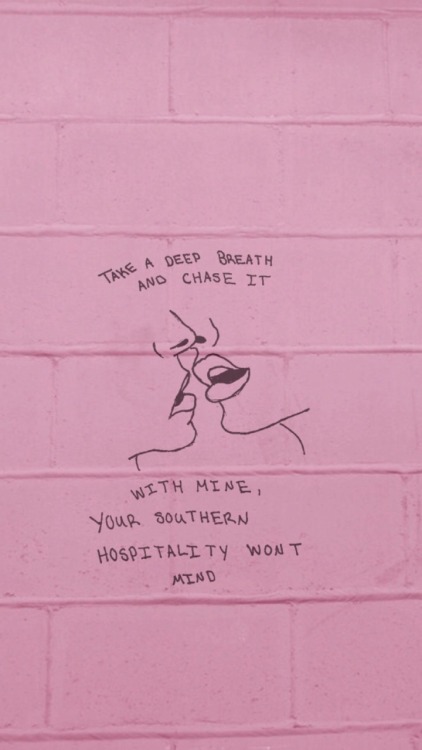 TAKE A DEEP BREATH
AND CHASE IT
WITH MINE,
YOUR SOUTHERN
HOSPITALITY WONT
MIND